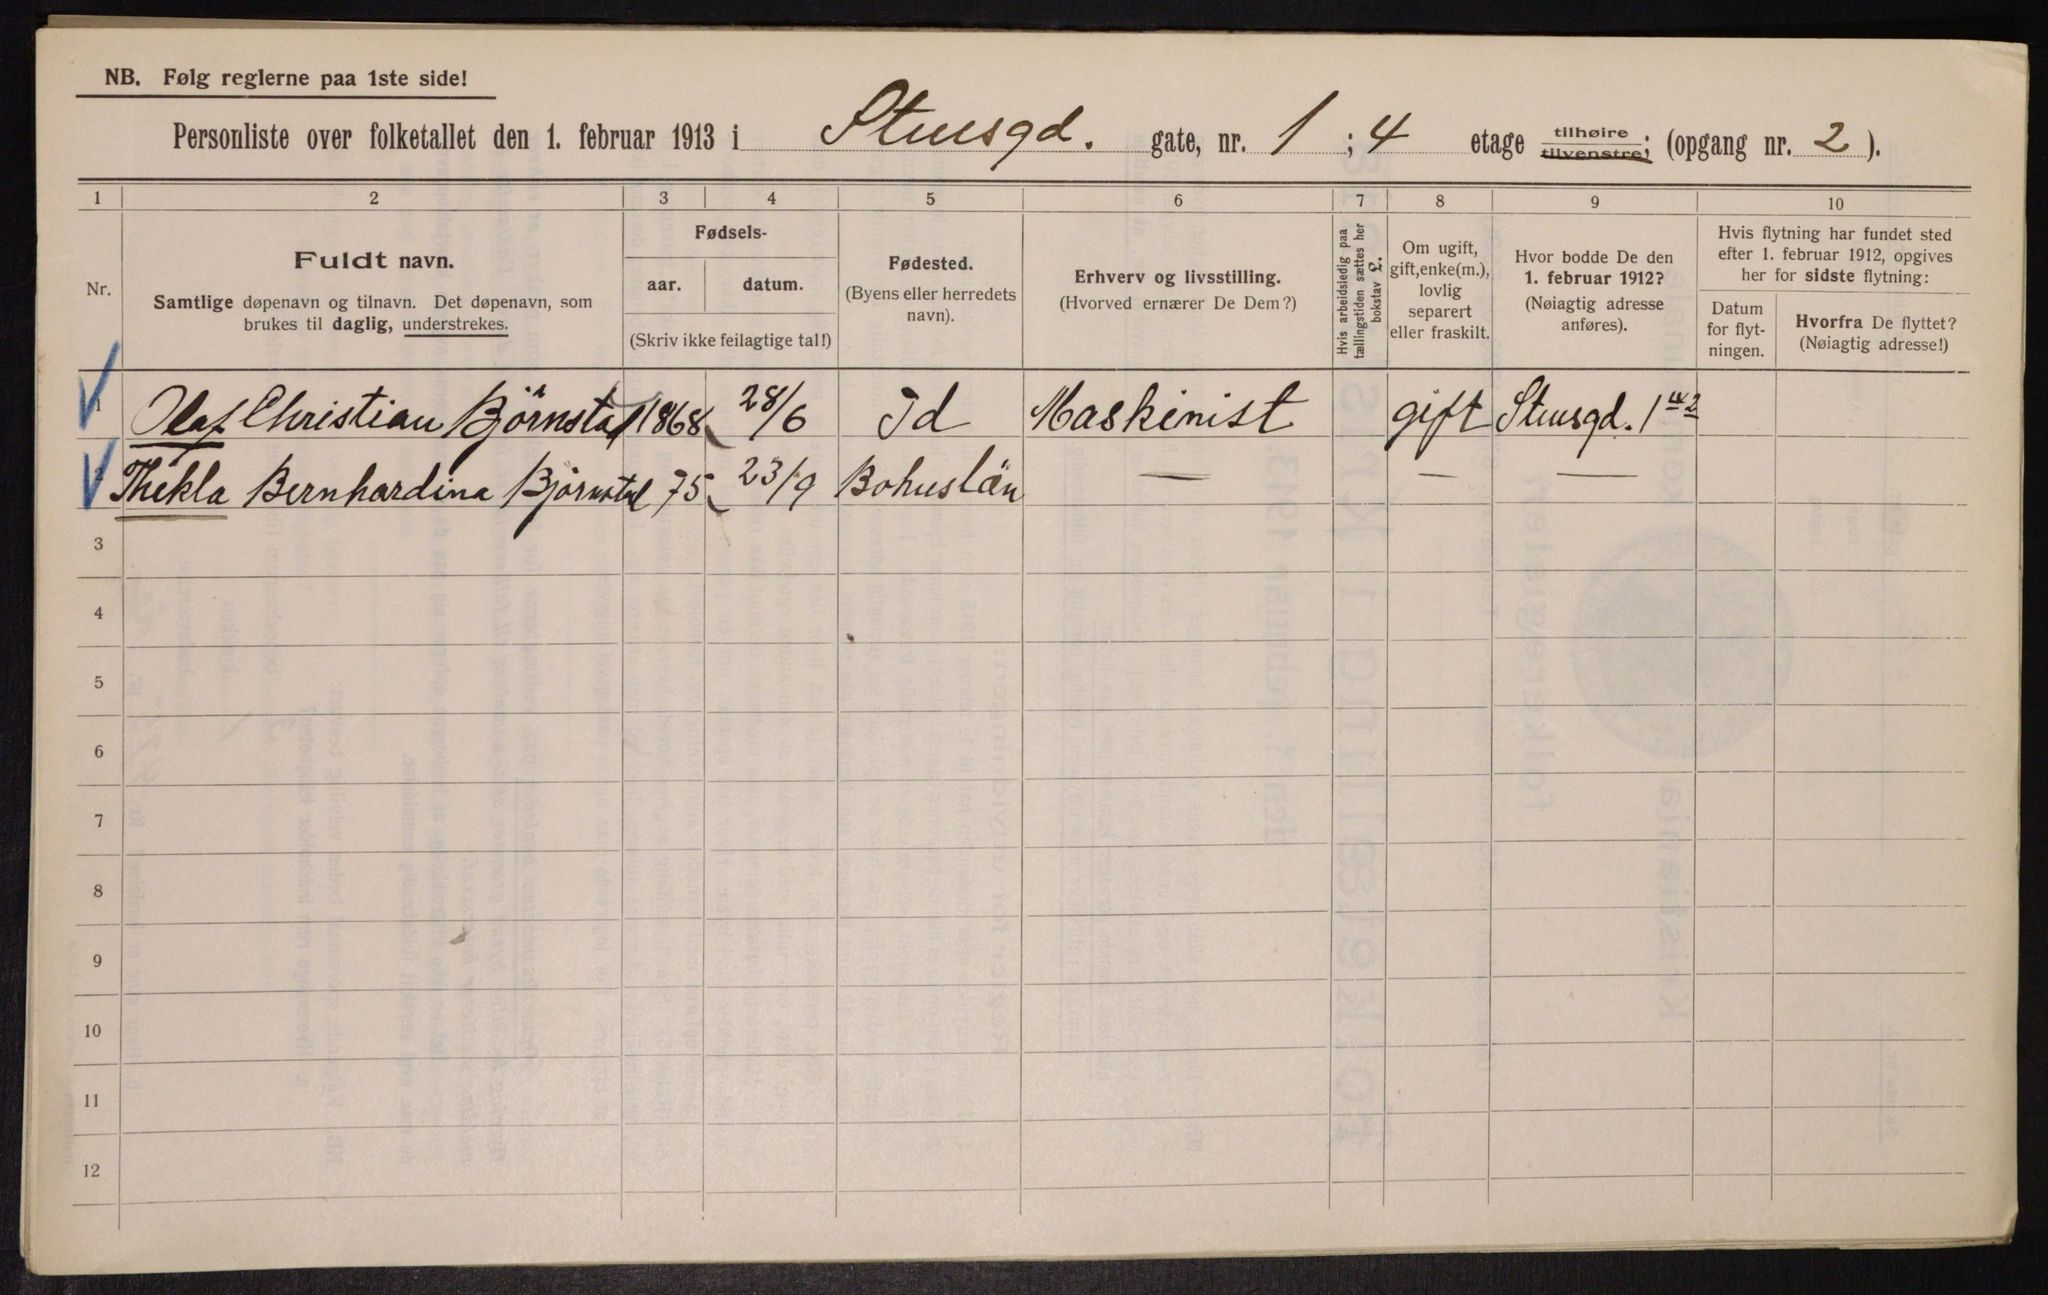 NB. Følg reglerne paa 1ste side!
Personliste over folketallet den 1. februar 1913 i Stensgd. gate, nr. 1 ; 4 etage tilhøire tilvenstre; (opgang nr. 2 ).
1 2 3 4 5 6 7 8 9 10
Nr.
Fuldt navn.
Samtlige døpenavn og tilnavn. Det døpenavn, som
brukes til daglig, understrekes.
Fødsels-
aar. datum.
(Skriv ikke feilagtige tal!)
Fødested.
(Byens eller herredets
navn).
Erhverv og livsstilling.
(Hvorved ernærer De Dem?)
Hvis arbeidsledig paa
tællingstiden sættes her
bokstav L.
Om ugift,
gift, enke(m.),
lovlig
separert
eller fraskilt.
Hvor bodde De den
1. februar 1912?
(Nøiagtig adresse
anføres).
Hvis flytning har fundet sted
efter 1. februar 1912, opgives
her for sidste flytning:
Datum
for flyt-
ningen.
Hvorfra De flyttet?
(Nøiagtig adresse!)
1 Olaf Christian Björnstad 1868 28/6 Id Maskinist gift Stensgd. 1
2 Thekla Bernhardina Björnstad 75 23/9 Bohuslän — — —
3
4
5
6
7
8
9
10
11
12